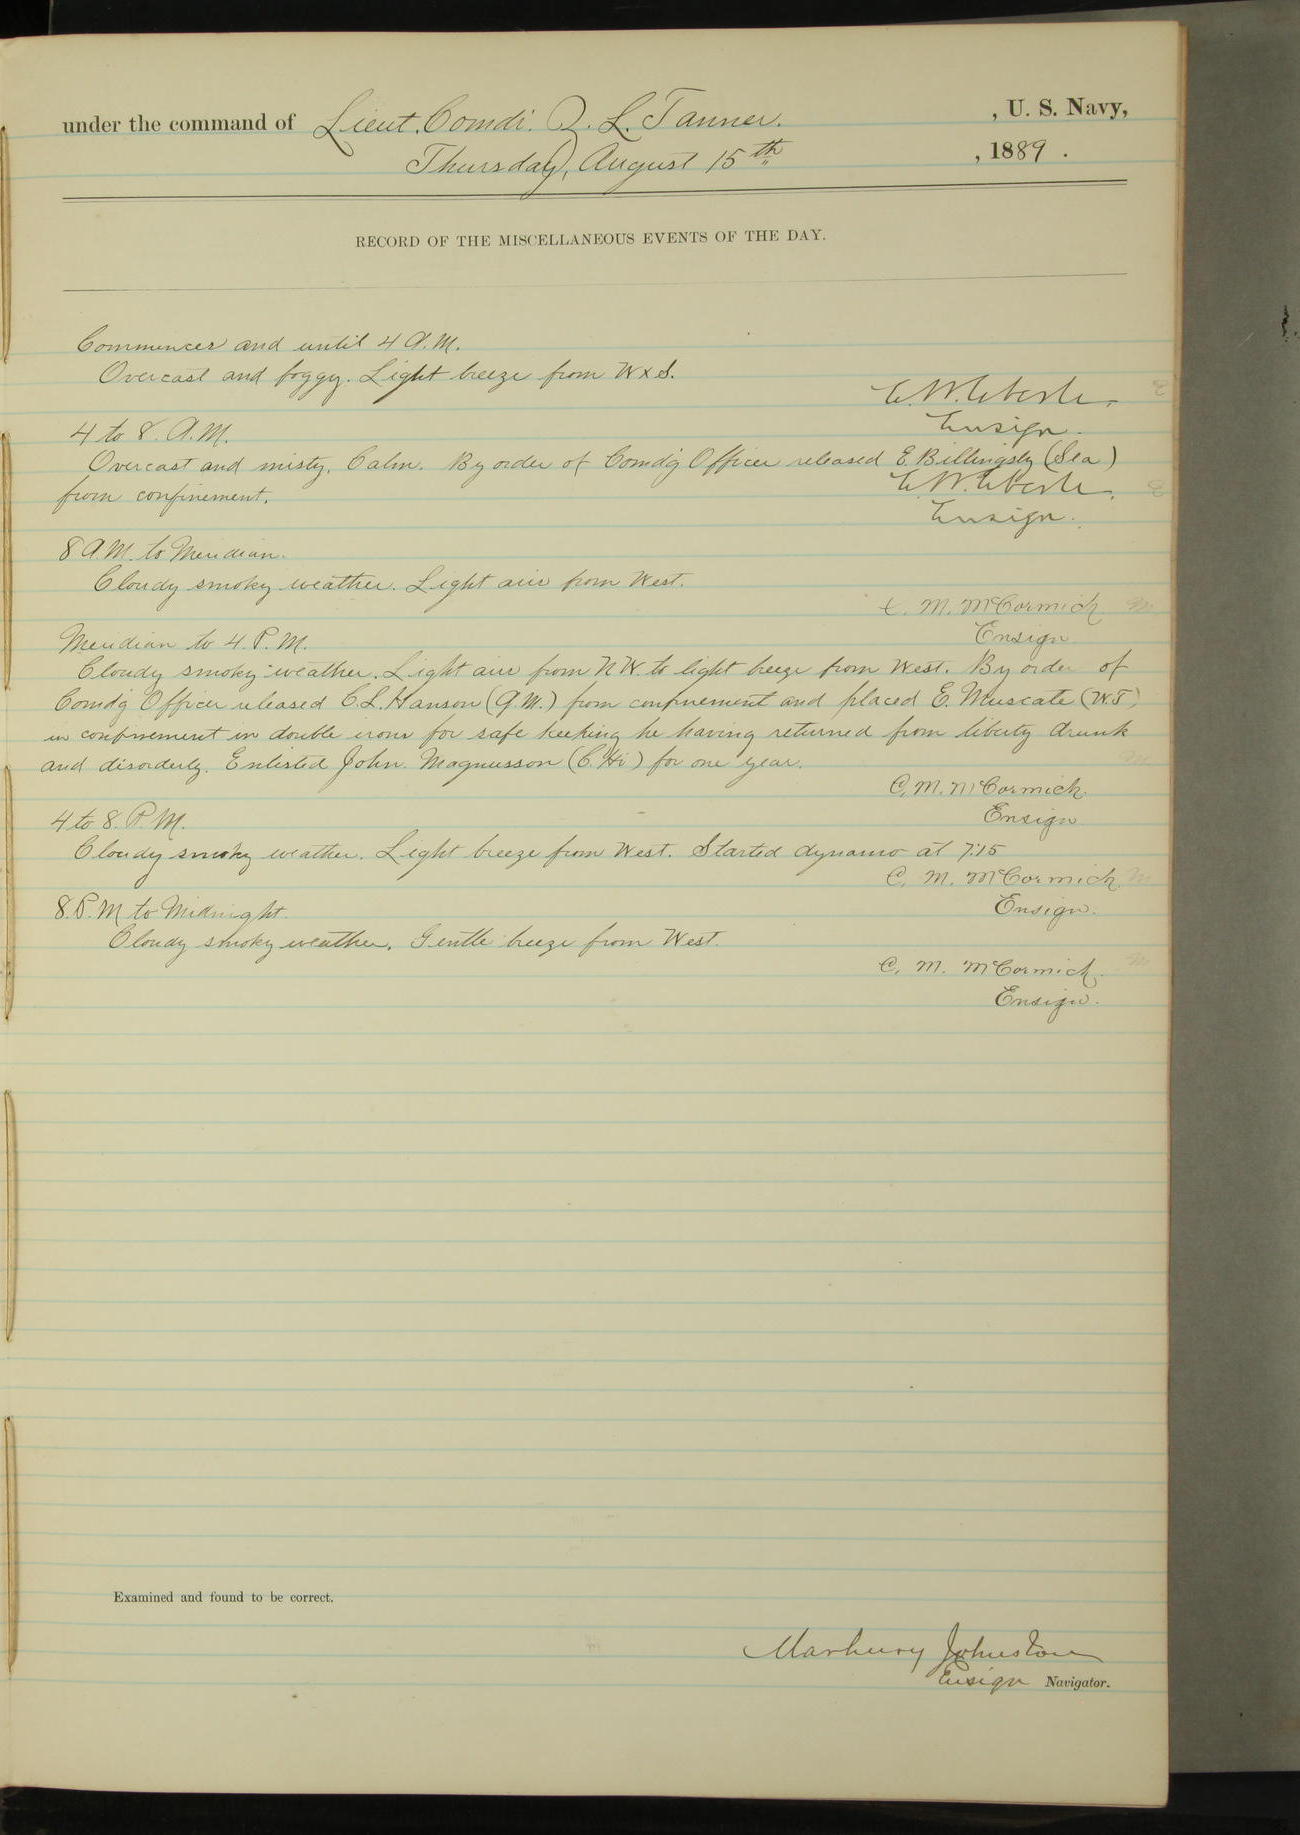 under the command of Lieut. Comdr. Z. L. Tanner. , U. S. Navy,
Thursday, August 15th , 1889 .
RECORD OF THE MISCELLANEOUS EVENTS OF THE DAY.
Commences and until 4 A.M.
Overcast and foggy. Light breeze from WxS.
E. W. Eberle.
Ensign.
4 to 8. A.M.
Overcast and misty. Calm. By order of Comd'g Officer released E. Billingsly (Sea)
from confinement.
E. W. Eberle.
Ensign.
8 A.M. to Meridian.
Cloudy smoky weather. Light airs from West.
C. M. McCormick
Ensign
Meridian to 4. P.M.
Cloudy smoky weather. Light airs from NW. to light breeze from West. By order of
Comd'g Officer released C. L. Hanson (Q.M.) from confinement and placed E. Muscate (W.T)
in confinement in double irons for safe keeping he having returned from liberty drunk
and disorderly. Enlisted John Magnusson (C. Hi) for one year.
C. M. McCormick.
Ensign
4 to 8. P.M.
Cloudy smoky weather. Light breeze from West. Started dynamo at 7:15
C. M. McCormick.
Ensign.
8. P.M to Midnight.
Cloudy smoky weather. Gentle breeze from West.
C. M. McCormick.
Ensign.
Examined and found to be correct.
Marbury Johnston
Ensign Navigator.